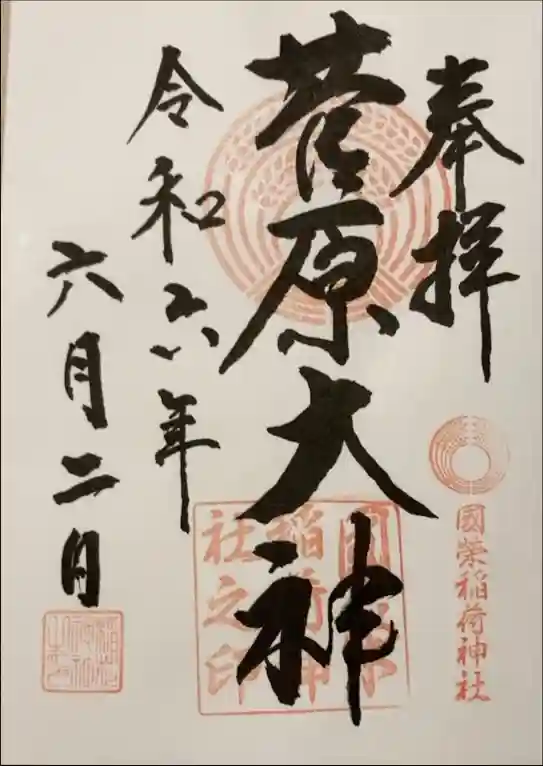 奉拝
國榮稲荷神社
菅原大神
國榮稲荷神社之印
令和六年
六月二日